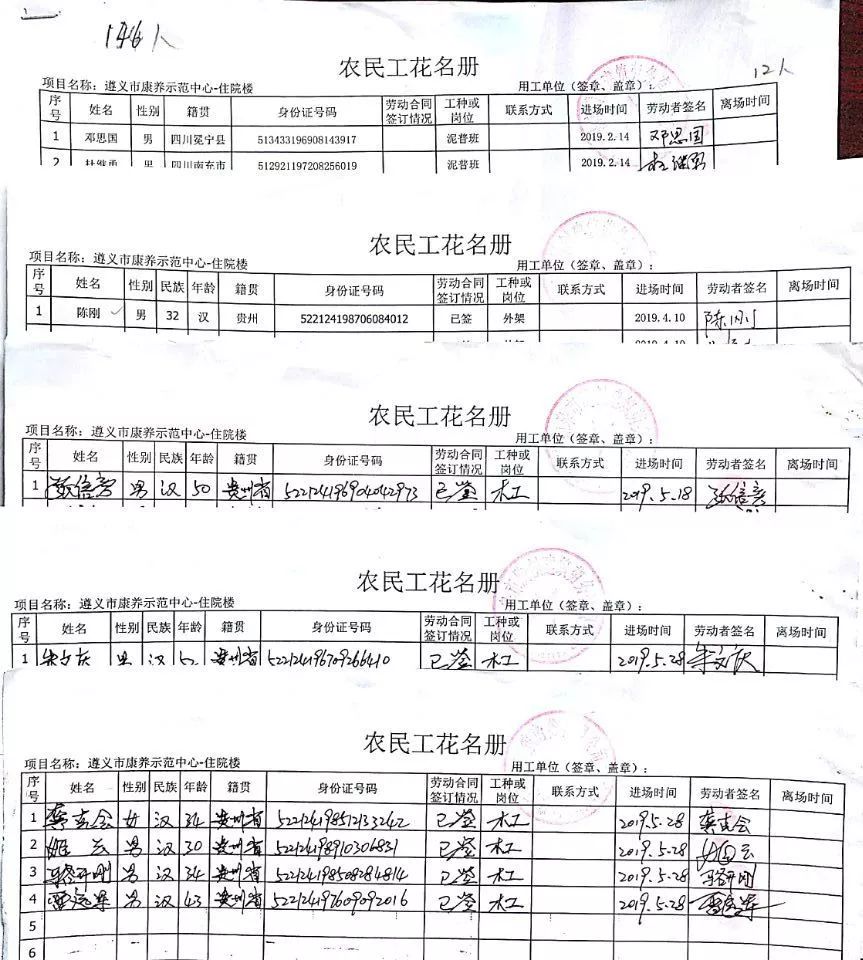 146人
农民工花名册
12人
项目名称：遵义市康养示范中心-住院楼 用工单位（签章、盖章）：
序号 姓名 性别 籍贯 身份证号码 劳动合同签订情况 工种或岗位 联系方式 进场时间 劳动者签名 离场时间
1 邓思国 男 四川冕宁县 513433196908143917 泥普班 2019.2.14 邓思国
2 杜继勇 男 四川南充市 512921197208256019 泥普班 2019.2.14 杜继勇
农民工花名册
项目名称：遵义市康养示范中心-住院楼 用工单位（签章、盖章）：
序号 姓名 性别 民族 年龄 籍贯 身份证号码 劳动合同签订情况 工种或岗位 联系方式 进场时间 劳动者签名 离场时间
1 陈刚 男 32 汉 贵州 522124198706084012 已签 外架 2019.4.10 陈刚
农民工花名册
项目名称：遵义市康养示范中心-住院楼 用工单位（签章、盖章）：
序号 姓名 性别 民族 年龄 籍贯 身份证号码 劳动合同签订情况 工种或岗位 联系方式 进场时间 劳动者签名 离场时间
1 男 汉 50 贵州省 522124196904042973 已签 木工 2019.5.18
农民工花名册
项目名称：遵义市康养示范中心-住院楼 用工单位（签章、盖章）：
序号 姓名 性别 民族 年龄 籍贯 身份证号码 劳动合同签订情况 工种或岗位 联系方式 进场时间 劳动者签名 离场时间
1 男 汉 52 贵州省 522124196709266410 已签 木工 2019.5.28
农民工花名册
项目名称：遵义市康养示范中心-住院楼 用工单位（签章、盖章）：
序号 姓名 性别 民族 年龄 籍贯 身份证号码 劳动合同签订情况 工种或岗位 联系方式 进场时间 劳动者签名 离场时间
1 女 汉 34 贵州省 已签 木工 2019.5.28
2 姬云 男 汉 30 贵州省 522124198910306831 已签 木工 2019.5.28 姬云
3 男 汉 34 贵州省 522124198508284814 已签 木工 2019.5.28
4 男 汉 43 贵州省 522124197609092016 已签 木工 2019.5.28
5
6